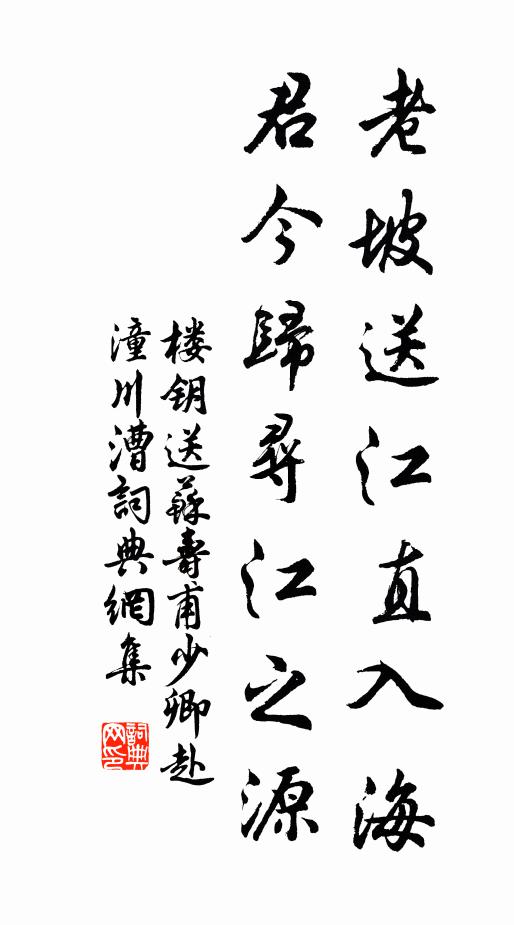 老坡送江直入海
君今歸尋江之源
楼钥送蘇壽甫少卿赴
潼川漕詞典網集
詞典
网印